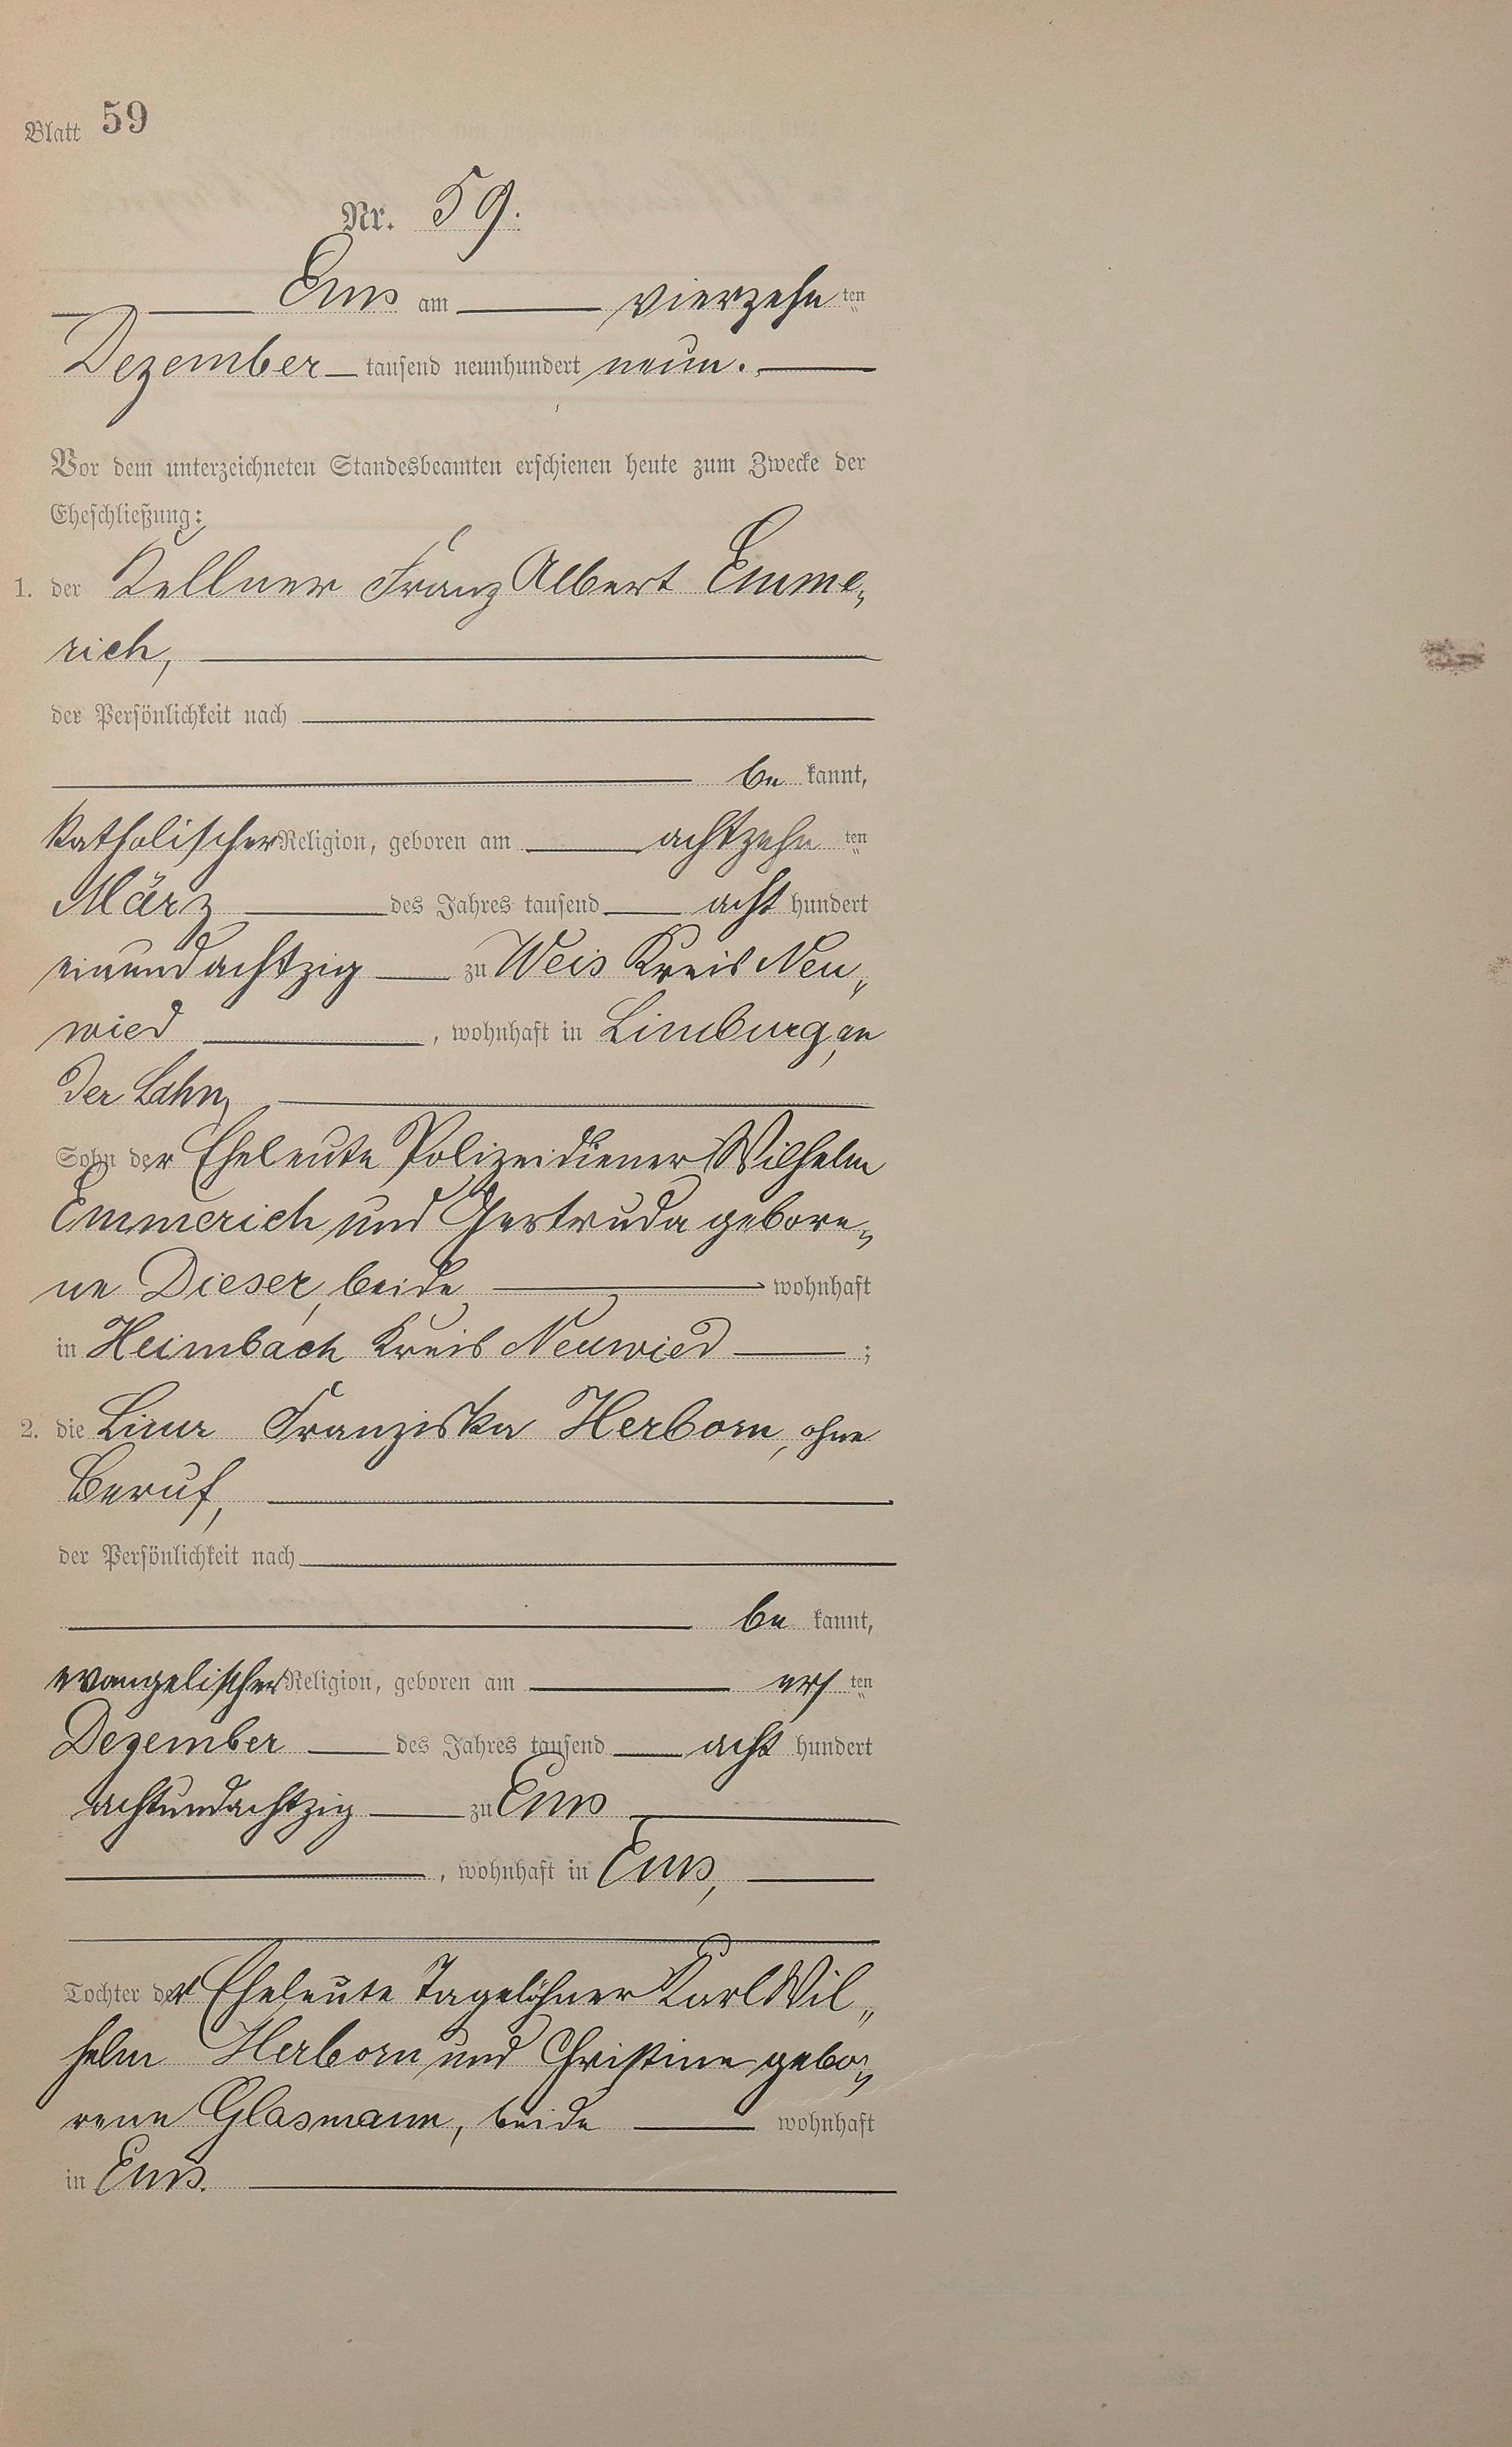 Blatt 59
Nr. 59.
Ems am vierzehn ten
Dezember tausend neunhundert neun.
Vor dem unterzeichneten Standesbeamten erschienen heute zum Zwecke der
Eheschließung:
1. der Kellner Franz Albert Emme-
rich,
der Persönlichkeit nach
be kannt,
katholischer Religion, geboren am achtzehn ten
März des Jahres tausend acht hundert
einundachtzig zu Weis Kreis Neu-
wied, wohnhaft in Limburg an
der Lahn,
Sohn der Eheleute Polizeidiener Wilhelm
Emmerich und Gertruda gebore-
ne Dieser, beide wohnhaft
in Heimbach Kreis Neuwied ;
2. die Lina Franziska Herborn, ohne
Beruf,
der Persönlichkeit nach
be kannt,
evangelischer Religion, geboren am ers ten
Dezember des Jahres tausend acht hundert
achtundachtzig zu Ems
, wohnhaft in Ems,
Tochter der Eheleute Tagelöhner Karl Wil-
helm Herborn und Christine gebo-
rene Glasmann, beide wohnhaft
in Ems.